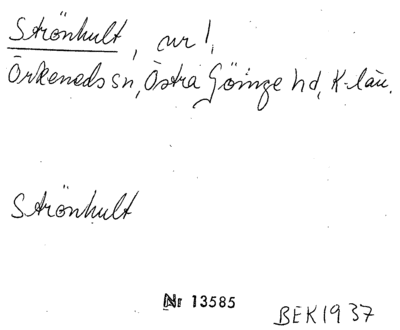 Strönhult, nr 1,
Örkeneds sn, Östra Göinge hd, K-län.
Strönhult
Nr 13585
BEK1937